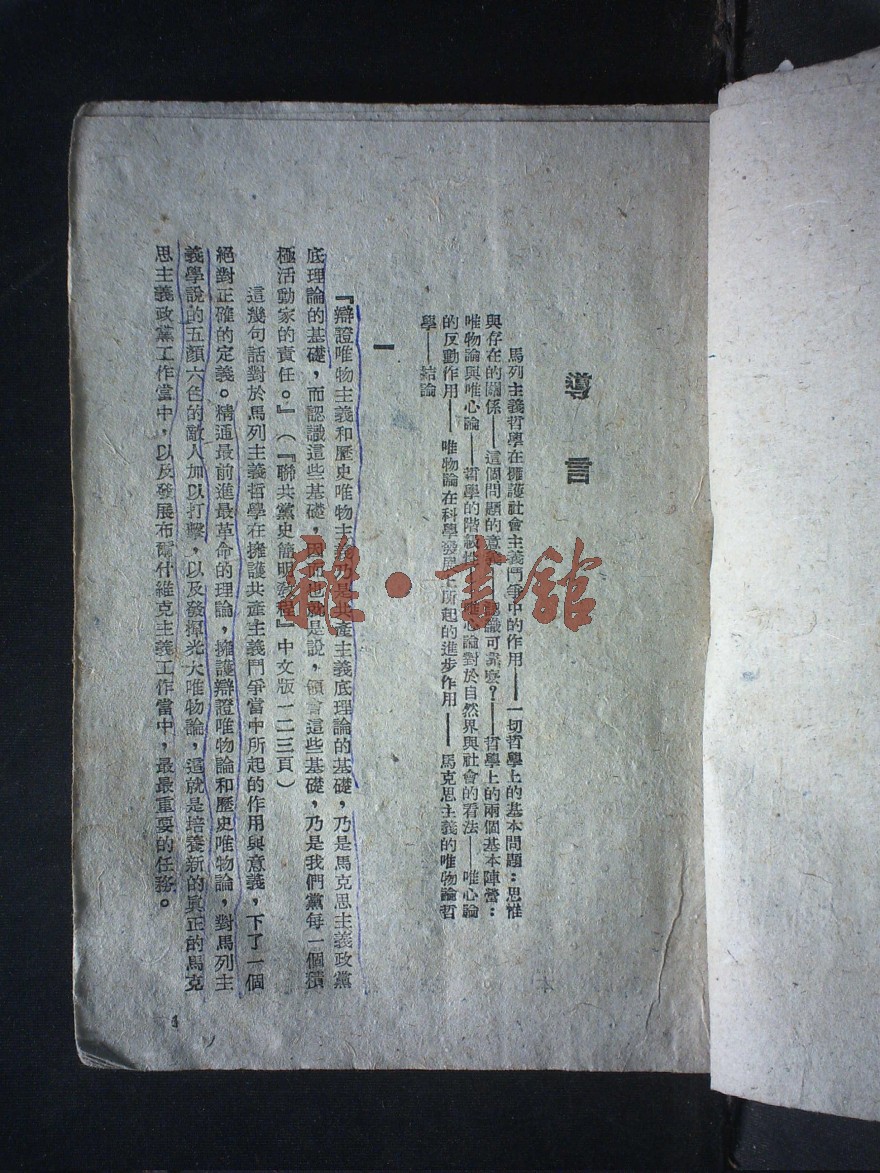 導言
馬列主義哲學在擁護社會主義鬥爭中的作用——一切哲學上的基本問題：思惟
與存在的關係——這個問題的意義——認識可靠麽？——哲學上的兩個基本陣營：
唯物論與唯心論——哲學的階級性——唯心論對於自然界與社會的看法——唯心論
的反動作用——唯物論在科學發展上所起的進步作用——馬克思主義的唯物論哲
學——結論
一
『辯證唯物主義和歷史唯物主義乃是共產主義底理論的基礎，乃是馬克思主義政黨
底理論的基礎，而認識這些基礎，因而也就是說，領會這些基礎，乃是我們黨每一個積
極活動家的責任。』（『聯共黨史簡明教程』中文版一二三頁）
這幾句話對於馬列主義哲學在擁護共產主義鬥爭當中所起的作用與意義，下了一個
絕對正確的定義。精通最前進最革命的理論，擁護辯證唯物論和歷史唯物論，對馬列主
義學說的五顏六色的敵人加以打擊，以及發揮光大唯物論，這就是培養新的真正的馬克
思主義政黨工作當中，以及發展布爾什維克主義工作當中，最最重要的任務。
雜·書館